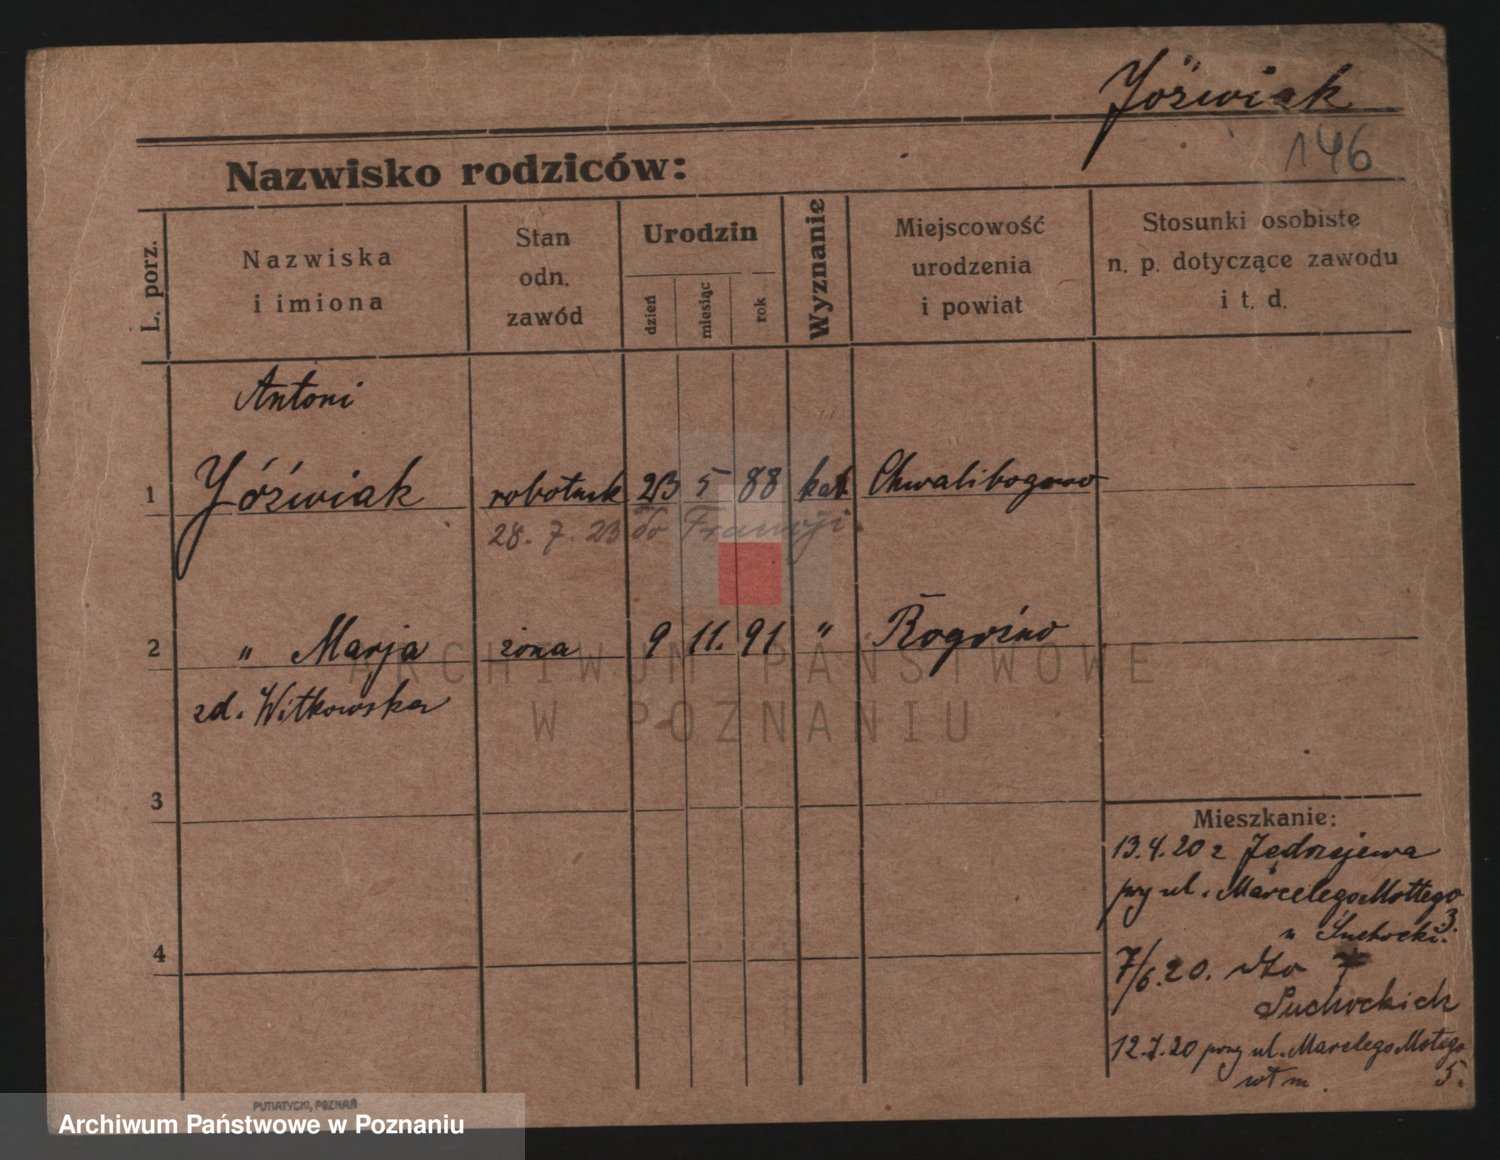 Jóźwiak
146
Nazwisko rodziców:
L. porz.
Nazwiska
i imiona
Stan
odn.
zawód
Urodzin
dzień
miesiąc
rok
Wyznanie
Miejscowość
urodzenia
i powiat
Stosunki osobiste
n. p. dotyczące zawodu
i t. d.
Antoni
1 Jóźwiak robotnik 23 5 88 kat. Chwalibogowo
28. 7. 23 do Francji.
2 " Marja żona 9 11. 91 " Rogoźno
zd. Witkowska
3
4
Mieszkanie:
13.4.20 z Jędrzejewa
przy ul. Marcelego Mottego
3.
u Suchocki.
7/6.20. dto
Suchockich
12.7.20 przy ul. Marcelego Motego
5.
wł m.
PUTIATYCKI, POZNAŃ
ARCHIWUM PAŃSTWOWE
W POZNANIU
Archiwum Państwowe w Poznaniu